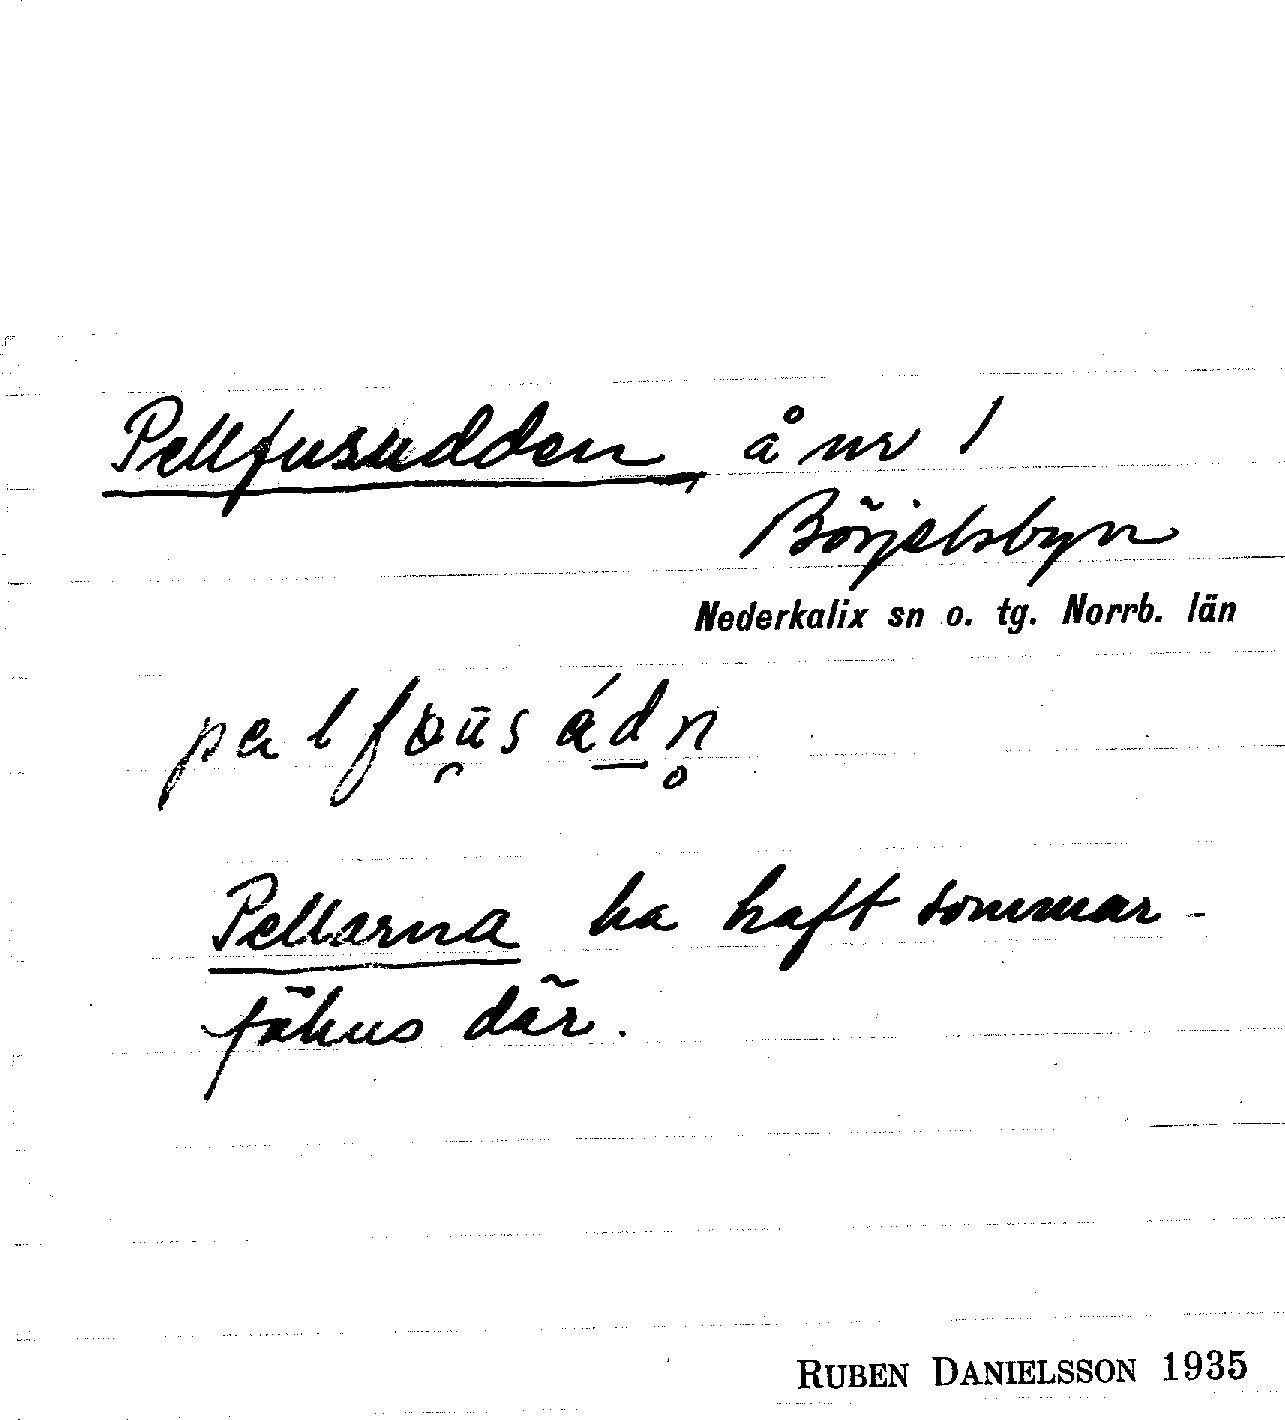 Pellfusudden, å nr 1
Börjelsbyn
Nederkalix sn o. tg. Norrb. län
Pellarna ha haft sommar-
fähus där.
RUBEN DANIELSSON 1935